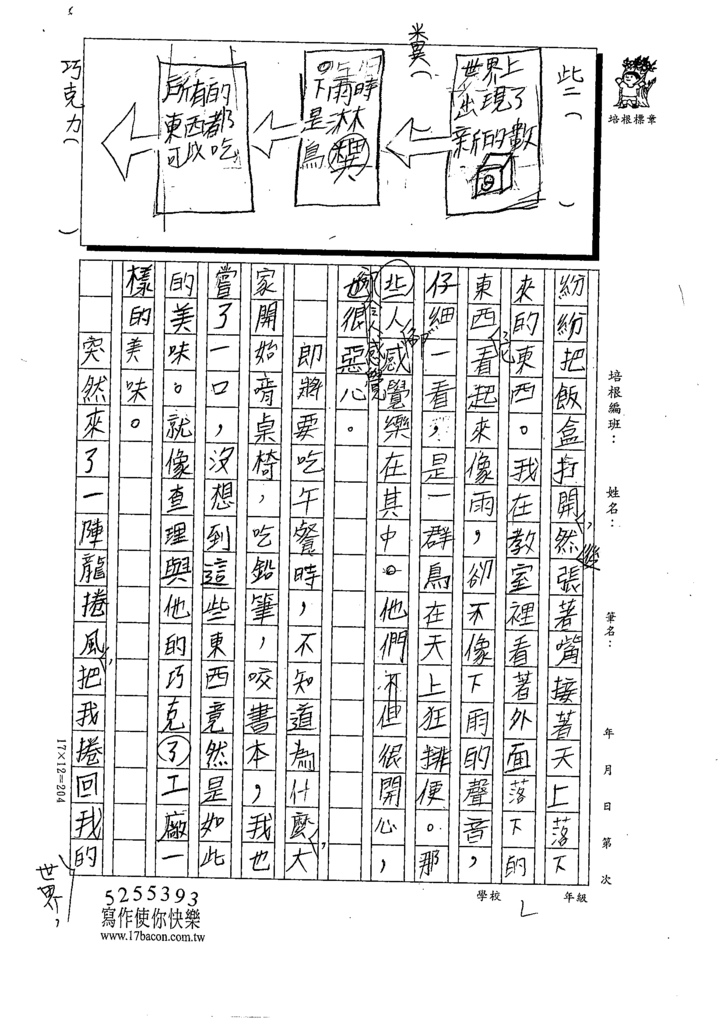 些（ ）
糞（
巧克力（ ）
世界上
出現了
新的數
下雨時
是淋
鳥糞
所有的
東西都
可以吃
培根標章
培根編班：
姓名：
筆名：
年 月 日 第 次
學校
年級
紛紛把飯盒打開，然後張著嘴接著天上落下
來的東西。我在教室裡看著外面落下的
東西，看起來像雨，卻不像下雨的聲音，
仔細一看，是一群鳥在天上狂排便。那
些人卻感覺樂在其中。他們不但很開心，
卻令人感覺很惡心。
即將要吃午餐時，不知道為什麼，大
家開始啃桌椅，吃鉛筆，咬書本，我也
嘗了一口，沒想到這些東西竟然是如此
的美味。就像查理與他的巧克了工廠一
樣的美味。
突然來了一陣龍捲風，把我捲回我的
世界，
17×12=204
5255393
寫作使你快樂
www.17bacon.com.tw